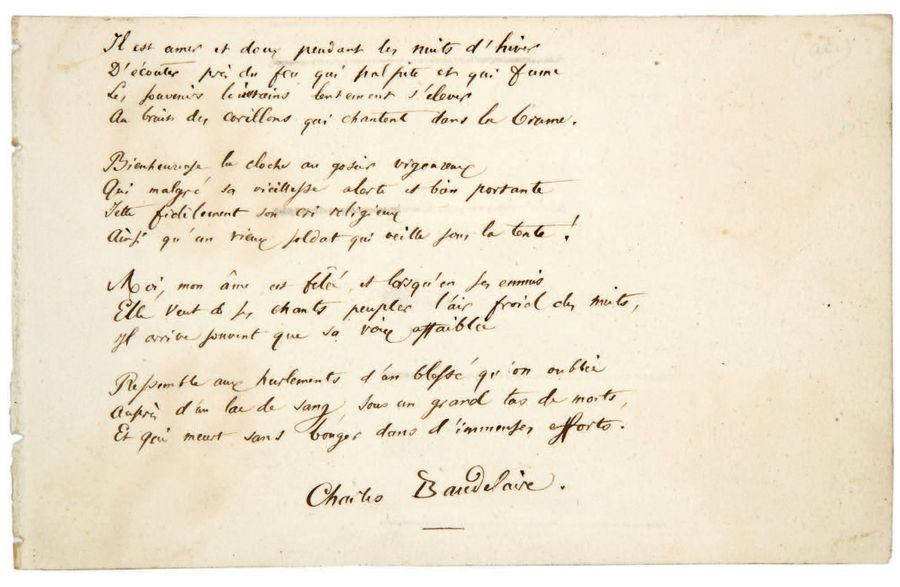 Il est amer et doux pendant les nuits d'hiver
D'écouter près du feu qui palpite et qui fume
Les souvenirs lointains lentement s'élever
Au bruit des carillons qui chantent dans la brume.
Bienheureuse la cloche au gosier vigoureux
Qui malgré sa vieillesse alerte et bien portante
Jette fidèlement son cri religieux
Ainsi qu'un vieux soldat qui veille sous la tente !
Moi, mon âme est fêlée, et lorsqu'en ses ennuis
Elle veut de ses chants peupler l'air froid des nuits,
Il arrive souvent que sa voix affaiblie
Ressemble aux hurlements d'un blessé qu'on oublie
Auprès d'un lac de sang, sous un grand tas de morts,
Et qui meurt sans bouger dans d'immenses efforts.
Charles Baudelaire.